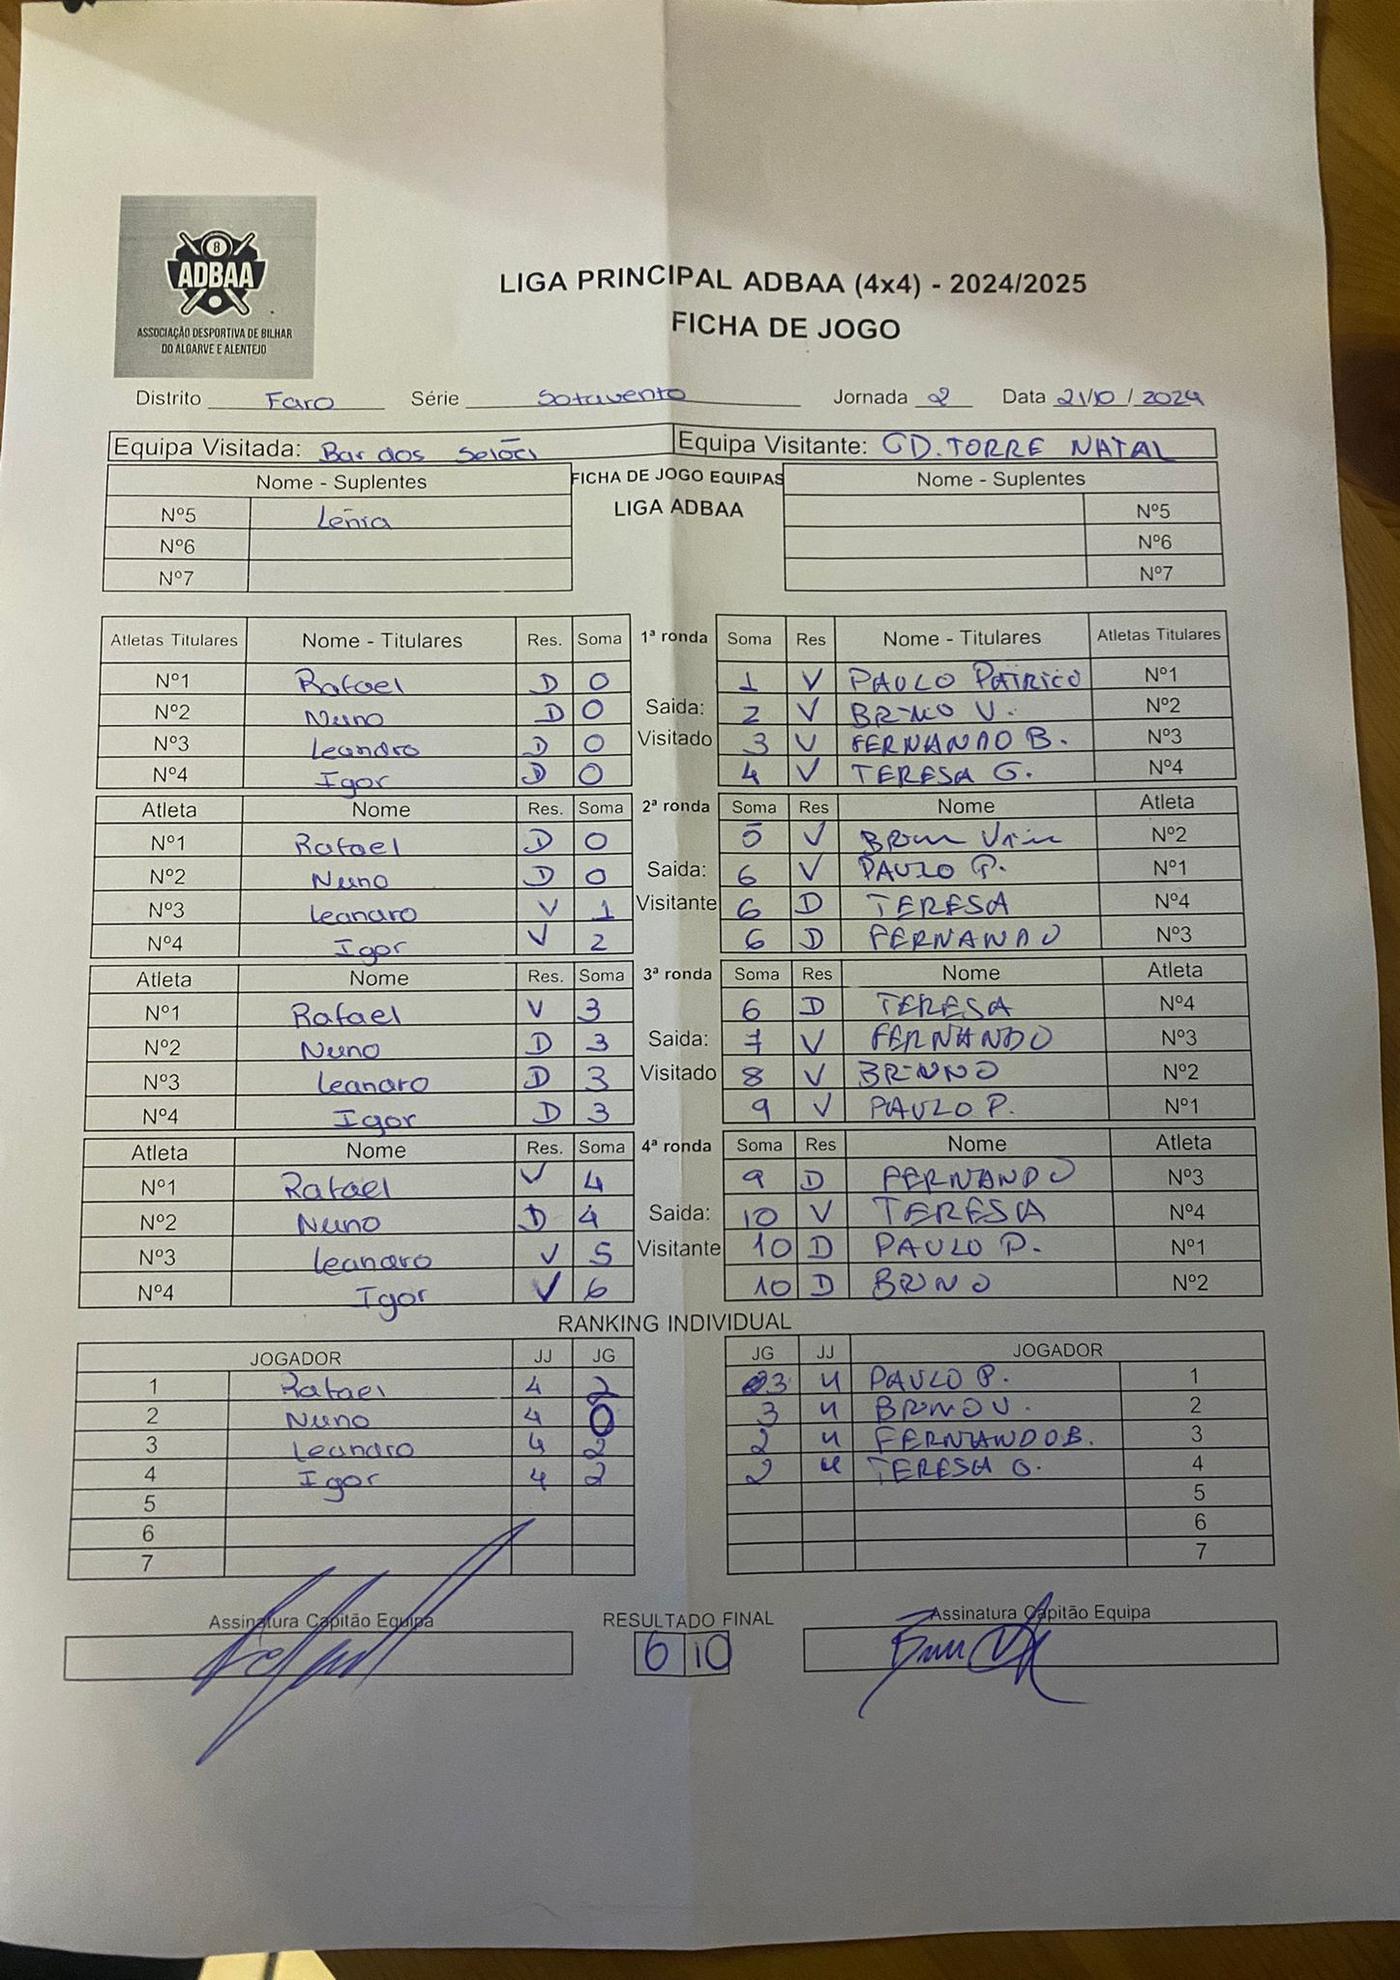 8
ADBAA
ASSOCIAÇÃO DESPORTIVA DE BILHAR
DO ALGARVE E ALENTEJO
LIGA PRINCIPAL ADBAA (4x4) - 2024/2025
FICHA DE JOGO
Distrito Faro Série Sotavento Jornada 2 Data 21/10/2024
Equipa Visitada: Bar dos Equipa Visitante: GD.TORRE NATAL
Nome - Suplentes FICHA DE JOGO EQUIPAS Nome - Suplentes
Nº5 Lénia LIGA ADBAA Nº5
Nº6 Nº6
Nº7 Nº7
Atletas Titulares Nome - Titulares Res. Soma 1ª ronda Soma Res Nome - Titulares Atletas Titulares
Nº1 Rafael D 0 1 V PAULO PATRICIO Nº1
Nº2 Nuno D 0 Saida: 2 V BRUNO V. Nº2
Nº3 Leandro D 0 Visitado 3 V FERNANDO B. Nº3
Nº4 Igor D 0 4 V TERESA G. Nº4
Atleta Nome Res. Soma 2ª ronda Soma Res Nome Atleta
Nº1 Rafael D 0 5 V Nº2
Nº2 Nuno D 0 Saida: 6 V PAULO P. Nº1
Nº3 Leandro V 1 Visitante 6 D TERESA Nº4
Nº4 Igor V 2 6 D FERNANDO Nº3
Atleta Nome Res. Soma 3ª ronda Soma Res Nome Atleta
Nº1 Rafael V 3 6 D TERESA Nº4
Nº2 Nuno D 3 Saida: 7 V FERNANDO Nº3
Nº3 Leandro D 3 Visitado 8 V BRUNO Nº2
Nº4 Igor D 3 9 V PAULO P. Nº1
Atleta Nome Res. Soma 4ª ronda Soma Res Nome Atleta
Nº1 Rafael V 4 9 D FERNANDO Nº3
Nº2 Nuno D 4 Saida: 10 V TERESA Nº4
Nº3 Leandro V 5 Visitante 10 D PAULO P. Nº1
Nº4 Igor V 6 10 D BRUNO Nº2
RANKING INDIVIDUAL
JOGADOR JJ JG JG JJ JOGADOR
1 Rafael 4 2 3 4 PAULO P. 1
2 Nuno 4 0 3 4 BRUNO V. 2
3 Leandro 4 2 2 4 FERNANDO B. 3
4 Igor 4 2 2 4 TERESA G. 4
5 5
6 6
7 7
Assinatura Capitão Equipa RESULTADO FINAL Assinatura Capitão Equipa
6 10